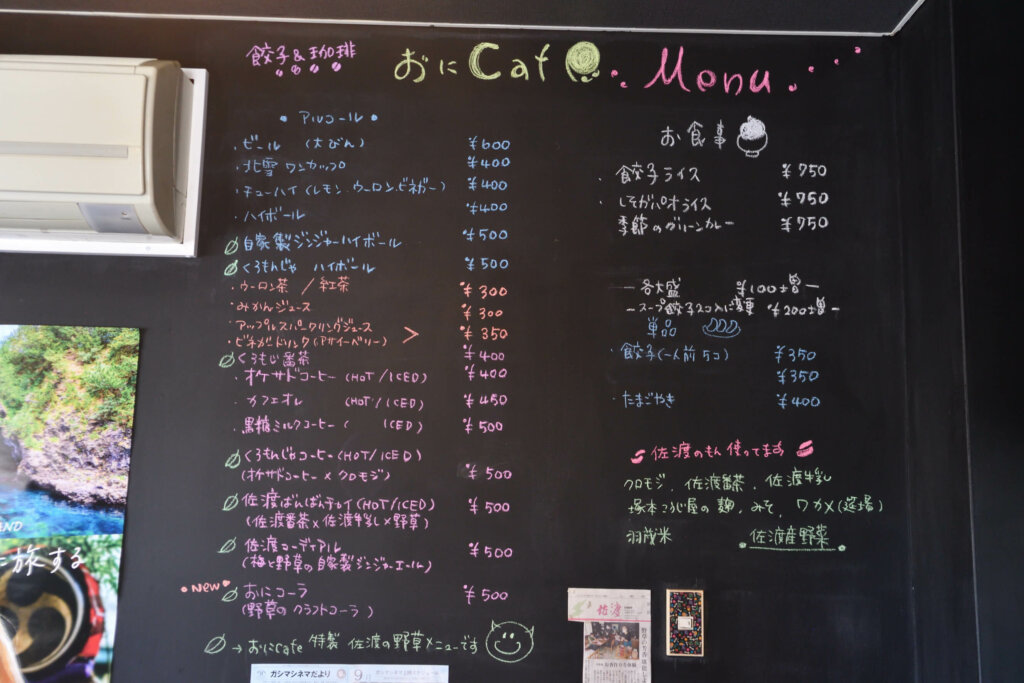 餃子&珈琲
おにCafe Menu
アルコール
・ビール (大びん) ¥600
・北雪 ワンカップ ¥400
・チューハイ (レモン・ウーロン・ビネガー) ¥400
・ハイボール ¥400
自家製ジンジャーハイボール ¥500
くろもんじゃ ハイボール ¥500
・ウーロン茶 / 紅茶 ¥300
・みかんジュース ¥300
・アップルスパークリングジュース
・ビネガードリンク (アサイーベリー) > ¥350
くろもじ番茶 ¥400
・オケサドコーヒー (HOT/ICED) ¥400
・カフェオレ (HOT/ICED) ¥450
・黒糖ミルクコーヒー ( ICED) ¥500
くろもんじゃコーヒー (HOT/ICED)
(オケサドコーヒー×クロモジ) ¥500
佐渡ばんばんチャイ (HOT/ICED) ¥500
(佐渡番茶×佐渡牛乳×野草)
佐渡コーディアル ¥500
(梅と野草の自家製ジンジャーエール)
New おにコーラ ¥500
(野草のクラフトコーラ)
→おにCafe 特製 佐渡の野草メニューです
お食事
・餃子ライス ¥750
・しそガパオライス ¥750
季節のグリーンカレー ¥750
ー各大盛 ¥100増ー
ースープ餃子2コ入に変更 ¥200増ー
単品
・餃子(一人前 5コ) ¥350
¥350
・たまごやき ¥400
佐渡のもん使ってます
クロモジ、佐渡番茶、佐渡牛乳
塚本こうじ屋の麹、みそ、ワカメ
羽茂米 佐渡産野菜
AND
に旅する
佐渡
ガシマシネマだより 9